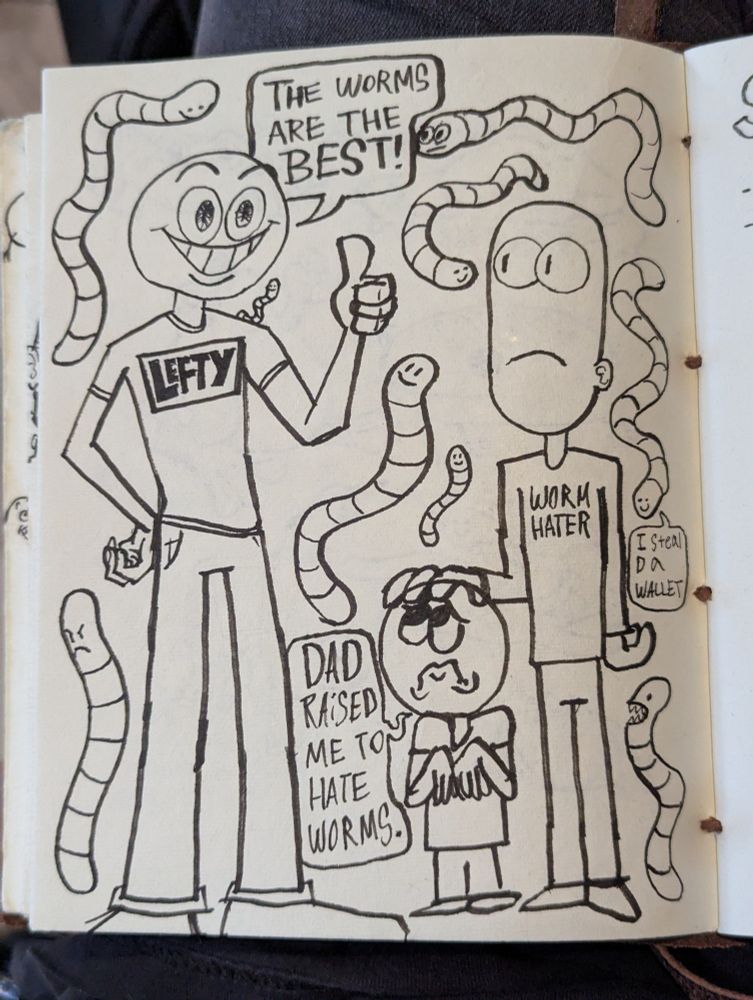 THE WORMS
ARE THE
BEST!
LEFTY
WORM
HATER
I Steal
Da
WALLET
DAD
RAiSED
ME TO
HATE
WORMS.